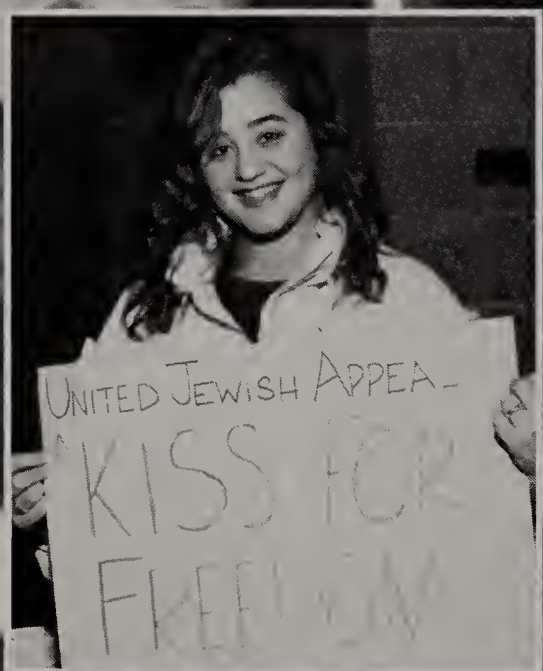 UNITED JEWISH APPEAL
KISS FOR
FREEDOM